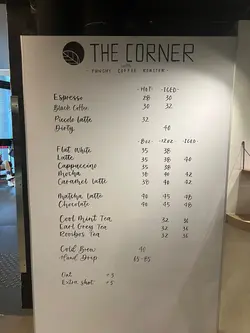 THE CORNER
COFFEE ROASTER
- HOT - - ICED -
Espresso 28 30
Black Coffee 30 32
Piccolo Latte 32
Dirty 40
- 8oz - - 12oz - - ICED -
Flat White 35 38
Latte 35 38 40
Cappuccino 35 38
Mocha 38 40 42
Caramel Latte 38 40 42
Matcha Latte 40 45 48
Chocolate 40 45 48
Cool Mint Tea 32 36
Earl Grey Tea 32 36
Rooibos Tea 32 36
Cold Brew
Hand Drip
Oat +5
Extra shot